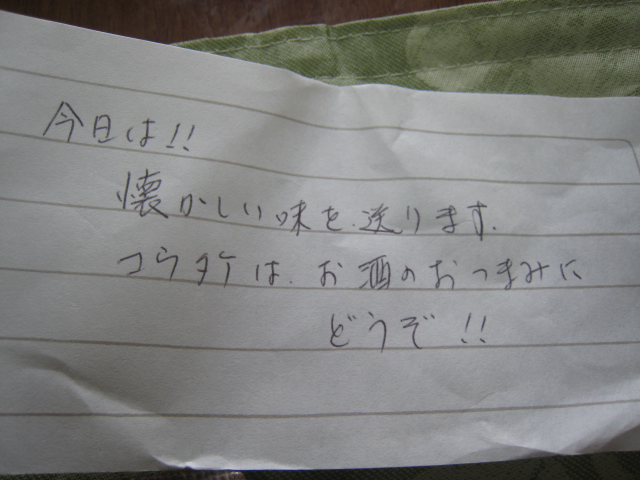 今日は!!
懐かしい味を送ります。
コウタケは、お酒のおつまみに
どうぞ!!